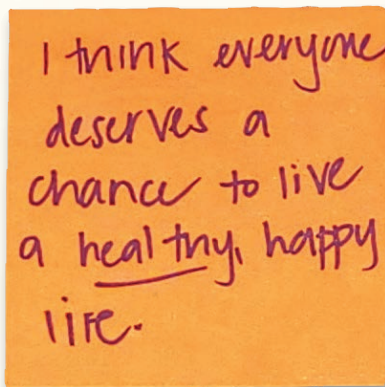 I think everyone
deserves a
chance to live
a healthy, happy
life.